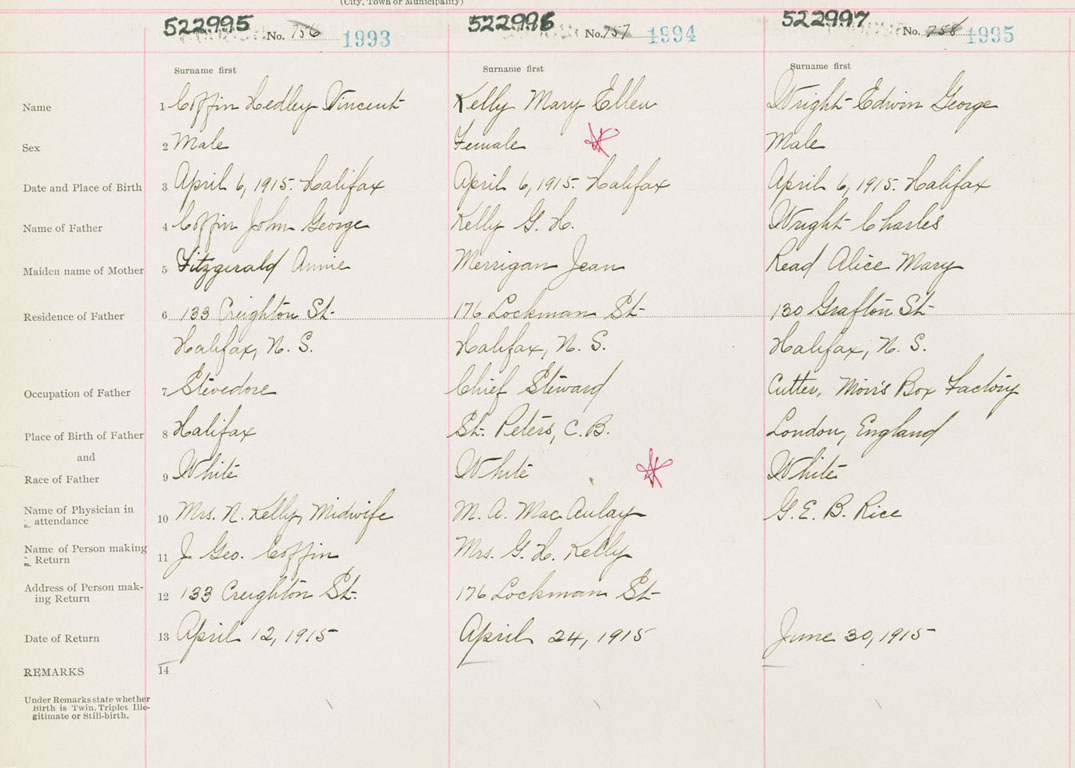 (City, Town or Municipality)
522995 No. 756 1993 522996 No. 757 1994 522997 No. 758 1995
Surname first Surname first Surname first
Name 1 Coffin Hedley Vincent Kelly Mary Ellen Wright Edwin George
Sex 2 Male Female Male
Date and Place of Birth 3 April 6, 1915. Halifax April 6, 1915. Halifax April 6, 1915. Halifax
Name of Father 4 Coffin John George Kelly G. H. Wright Charles
Maiden name of Mother 5 Fitzgerald Annie Merrigan Jean Read Alice Mary
Residence of Father 6 133 Creighton St. 176 Lockman St. 130 Grafton St.
Halifax, N. S. Halifax, N. S. Halifax, N. S.
Occupation of Father 7 Stevedore Chief Steward Cutter, Moirs Box Factory
Place of Birth of Father 8 Halifax St. Peters, C. B. London, England
and
Race of Father 9 White White White
Name of Physician in
attendance 10 Mrs. N. Kelly, Midwife M. A. MacAulay G. E. B. Rice
Name of Person making
Return 11 J. Geo. Coffin Mrs. G. H. Kelly
Address of Person mak-
ing Return 12 133 Creighton St. 176 Lockman St.
Date of Return 13 April 12, 1915 April 24, 1915 June 30, 1915
REMARKS 14
Under Remarks state whether
Birth is Twin, Triplet Ille-
gitimate or Still-birth.